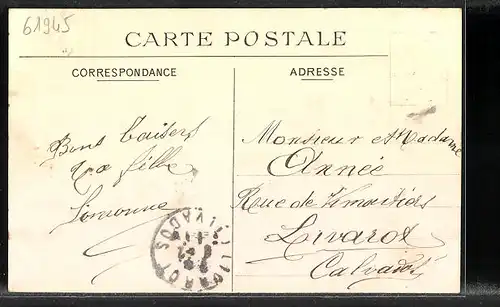 61945
CARTE POSTALE
CORRESPONDANCE
ADRESSE
Bons baisers
Ta fille
Simonne
Monsieur et Madame
Année
Rue de Vimoutiers
Livarot
Calvados
LIVAROT
CALVADOS